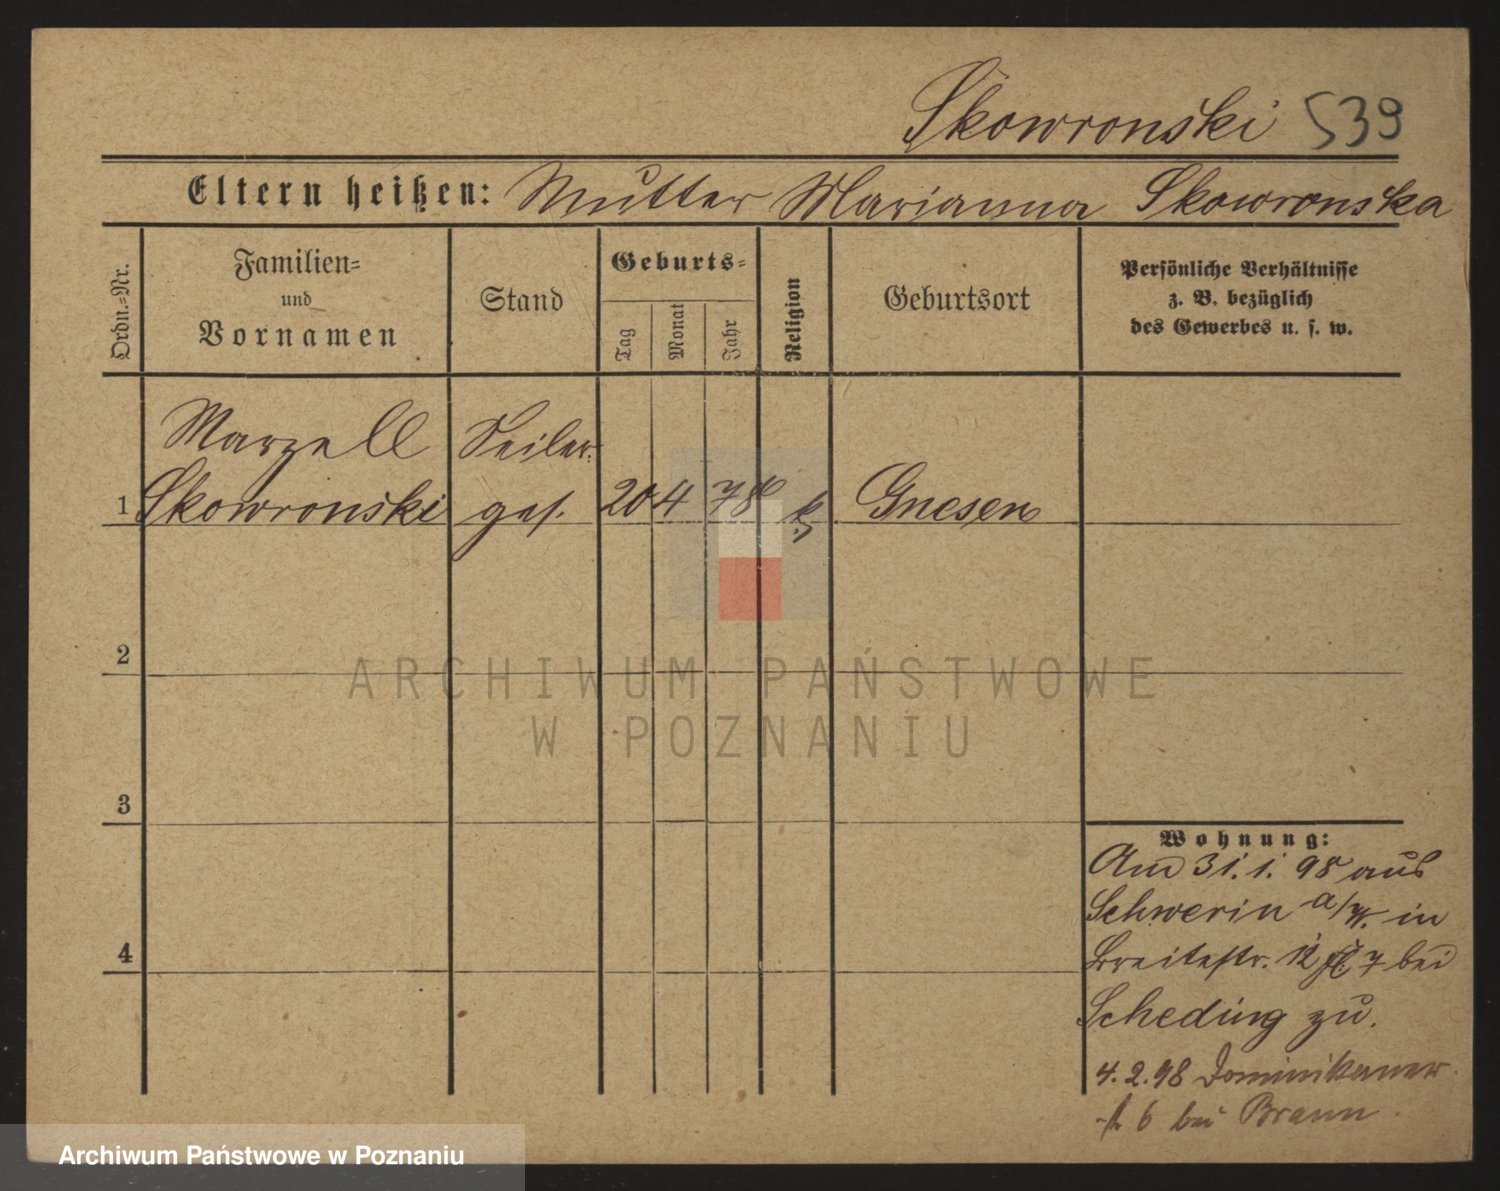 Skowronski 539
Eltern heißen: Mutter Marianna Skowronska
Ordn.=Nr.
Familien=
und
Vornamen
Stand
Geburts=
Tag
Monat
Jahr
Religion
Geburtsort
Persönliche Verhältnisse
z. B. bezüglich
des Gewerbes u. s. w.
Marzell Seiler
1 Skowronski ges. 20 4 78 k Gnesen
2
ARCHIWUM PAŃSTWOWE
W POZNANIU
3
Wohnung:
Am 31.1.98 aus
Schwerin a/W. in
4
Breitestr. 12 7 bei
Scheding zu.
4.2.98 Dominikaner
6 bei Braun
Archiwum Państwowe w Poznaniu